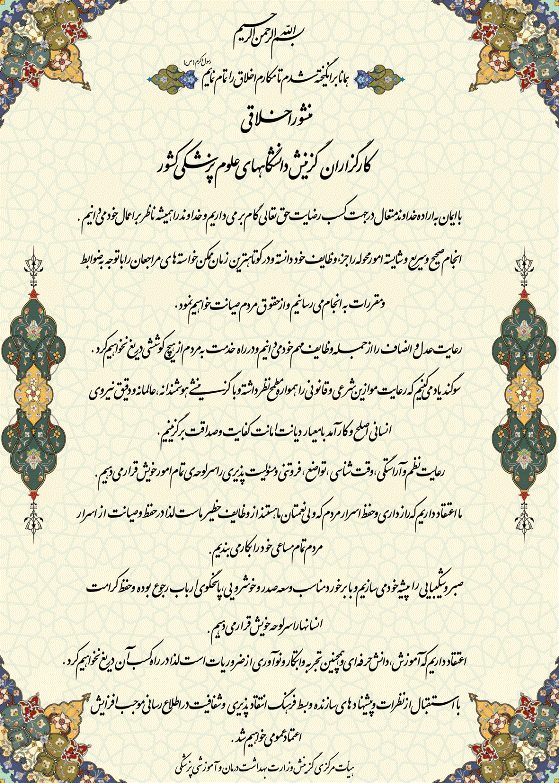 بسم الله الرحمن الرحیم
رسول اکرم (ص)
همانا برانگیخته شدم تا مکارم اخلاق را تمام نمایم
منشور اخلاقی
کارگزاران گزینش دانشگاههای علوم پزشکی کشور
با ایمان به اراده خداوند متعال در جهت کسب رضایت حق تعالی گام برمی داریم و خداوند را همیشه ناظر بر اعمال خود می دانیم .
انجام صحیح و سریع و شایسته امور محوله را جزء وظایف خود دانسته و در کوتاهترین زمان ممکن خواسته های مراجعان را با توجه به ضوابط
و مقررات به انجام می رسانیم و از حقوق مردم صیانت خواهیم نمود .
رعایت عدل و انصاف را از جمله وظایف مهم خود می دانیم و در راه خدمت به مردم از هیچ کوششی دریغ نخواهیم کرد .
سوگند یاد می کنیم که رعایت موازین شرعی و قانونی را همواره مطمح نظر داشته و با گزینشی هوشمندانه، عالمانه و دقیق نیروی
انسانی اصلح و کارآمد با معیار دیانت امانت کفایت و صداقت برگزینیم .
رعایت نظم و آراستگی ، وقت شناسی ، تواضع ، فروتنی و مسئولیت پذیری را سرلوحه ی تمام امور خویش قرار می دهیم .
ما اعتقاد داریم که رازداری و حفظ اسرار مردم که ولی نعمتان ما هستند از وظایف خطیر ماست لذا در حفظ و صیانت از اسرار
مردم تمام مساعی خود را بکار می بندیم .
صبر و شکیبایی را پیشه خود می سازیم و با برخورد مناسب وسعه صدر و خوشرویی ، پاسخگوی ارباب رجوع بوده و حفظ کرامت
انسانها را سرلوحه خویش قرار می دهیم .
اعتقاد داریم که آموزش ، دانش حرفه ای و همچنین تجربه و ابتکار و نوآوری از ضروریات است لذا در راه کسب آن دریغ نخواهیم کرد .
با استقبال از نظرات و پیشنهادهای سازنده و بسط فرهنگ انتقاد پذیری و شفافیت در اطلاع رسانی موجب افزایش
اعتماد عمومی خواهیم شد .
هیات مرکزی گزینش وزارت بهداشت درمان و آموزش پزشکی